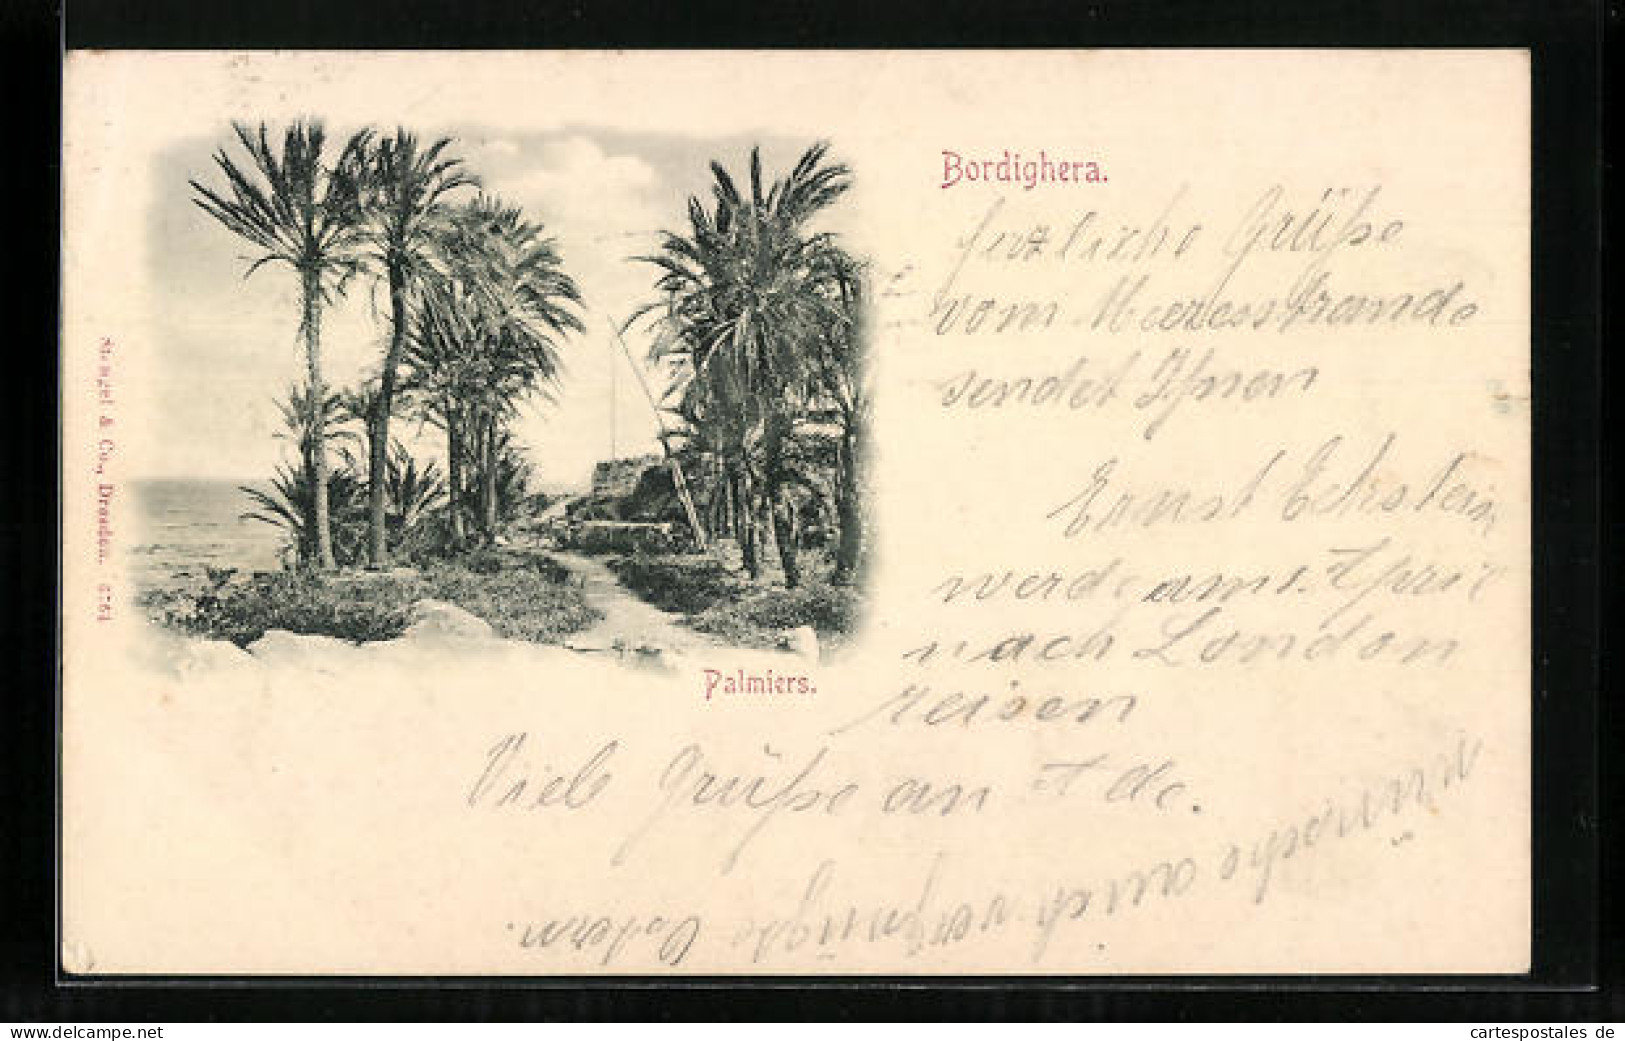 Bordighera.
Herzliche Grüße
vom Meeresstrande
sendet Ihnen
Ernst Eckstein
werde am 1. April
nach London
reisen
Viele Grüße an Ade.
wünsche auch vergnügte Ostern.
Palmiers.
Stengel & Co., Dresden.
cartespostales de